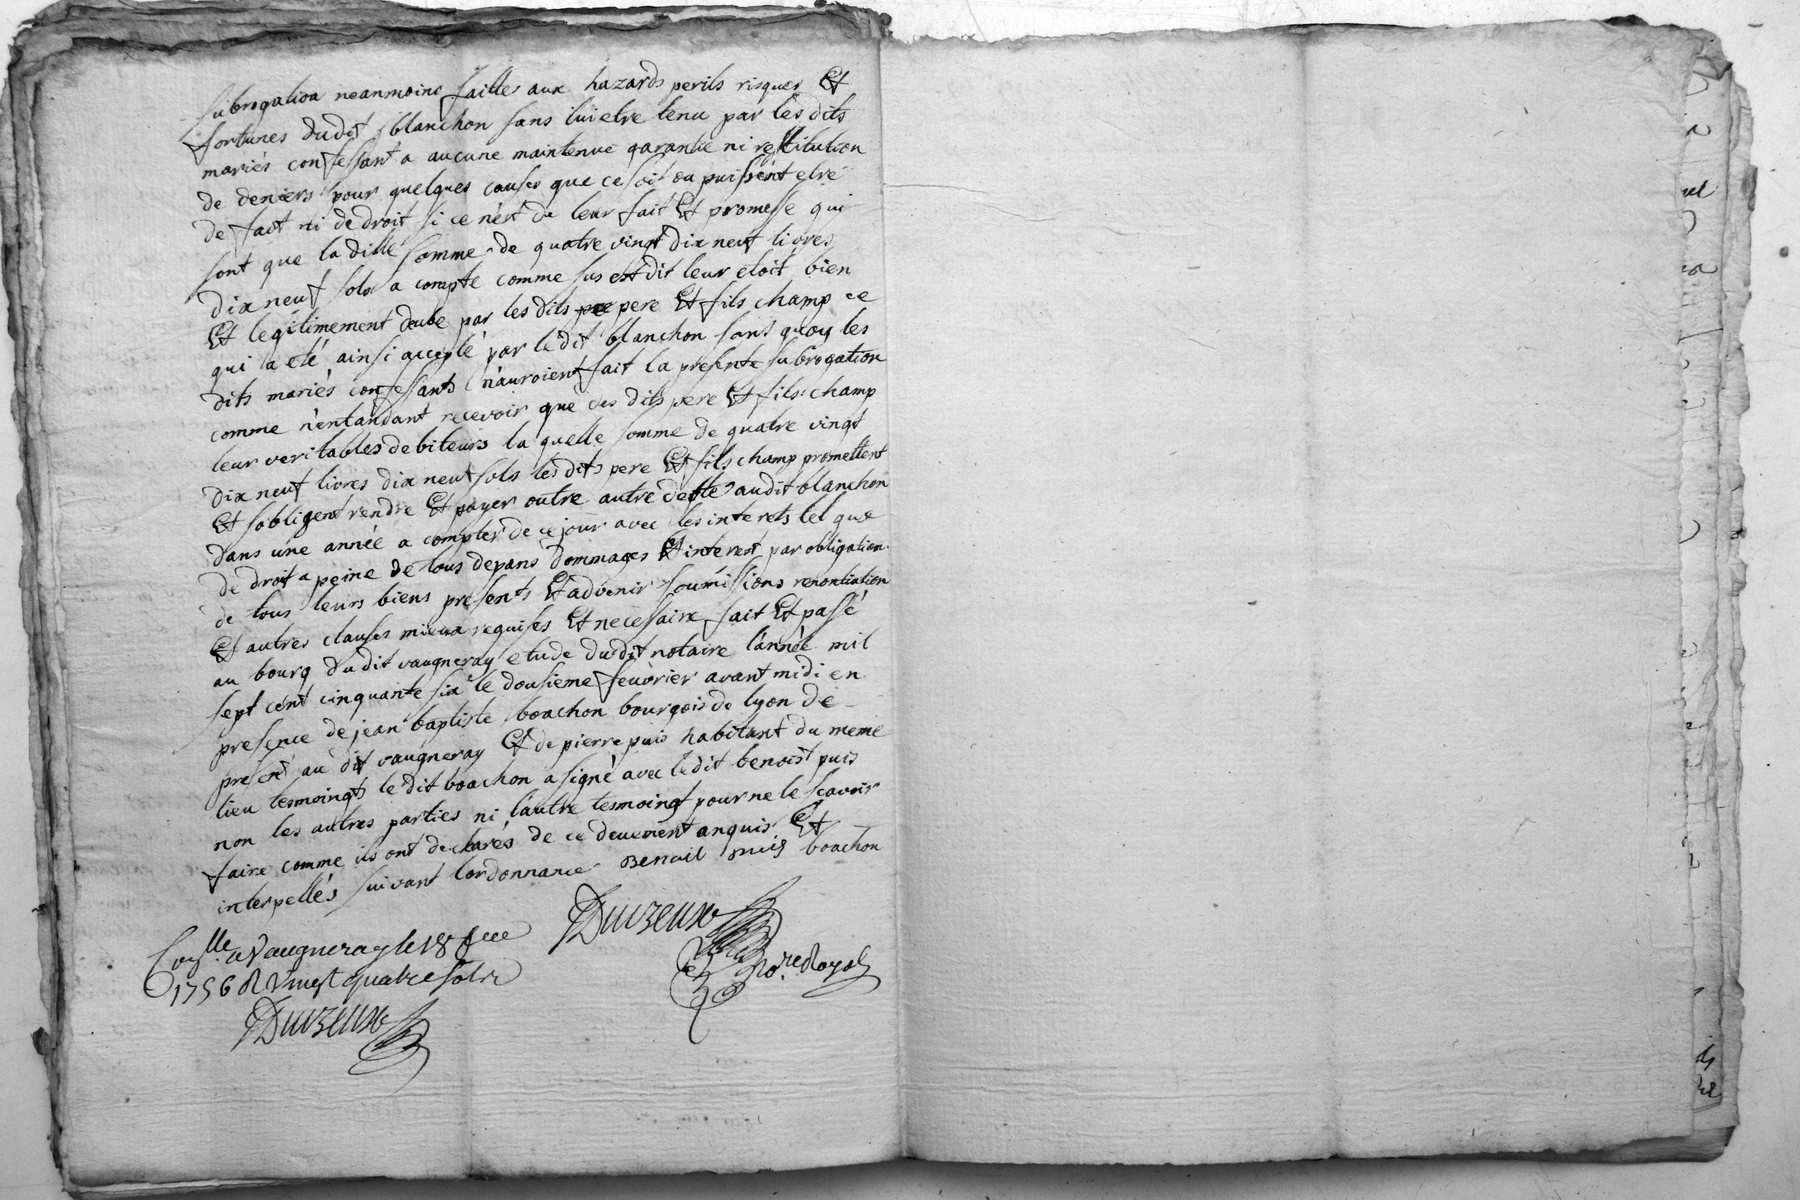 subrogation neanmoins faitte aux hazards perils risques Et
fortunes dudit blanchon sans lui etre tenu par les dits
mariés confessant a aucune maintenue garantie ni restitution
de deniers pour quelques causes que ce soit ou puissent etre
de fait ni de droit si ce n'est de leur fait Et promesse qui
sont que la ditte somme de quatre vingt dix neuf livres
dix neuf sols a compte comme sus est dit leur etoit bien
Et legitimement deube par les dits pere Et fils champ ce
qui a eté ainsi accepté par le dit blanchon sans quoy les
dits mariés confessants n'auroient fait la presente subrogation
comme n'entandant recevoir que des dits pere Et fils champ
leur veritables debiteurs la quelle somme de quatre vingt
dix neuf livres dix neuf sols les dits pere Et fils champ promettent
Et s'obligent rendre Et payer outre autre dette audit blanchon
dans une année a compter de ce jour avec les interets tel que
de droit a peine de tous depans dommages Et interest par obligation
de tous leurs biens presents Et advenir soumissions renontiation
Et autres clauses mieux requises Et necessaire fait Et passé
au bourg du dit vaugneray etude dudit notaire l'année mil
sept cent cinquante six le dousieme feuvrier avant midi en
presence de jean baptiste boachon bourgois de lyon de
present au dit vaugneray Et de pierre puis habitant du meme
lieu tesmoings le dit boachon a signé avec le dit benoist puis
non les autres parties ni l'autre tesmoing pour ne le scavoir
faire comme ils ont declarés de ce deuement anquis Et
interpellés suivant l'ordonnance Benoit puis boachon
Duvzeux
No.re Royal
Con.lle a Vaugneray le 18 fue
1756 R Vingt quatre sols
Duvzeux